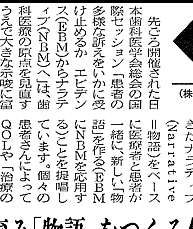 先ごろ開催された日
本歯科医学会総会の国
際セッション「患者の
多様な訴えをいかに受
け止めるか エビデン
ス(EBM)からナラテ
ィブ(NBM)へ」は、歯
科医療の原点を見直す
うえで大きな示唆に富
(Narrative
=物語)をベース
に医療者と患者が
一緒に、新しい「物
語」を作る(EBM
にNBMを応用す
る)ことを提唱し
ています。個々の
患者さんによって
QOLや「治療の
(株